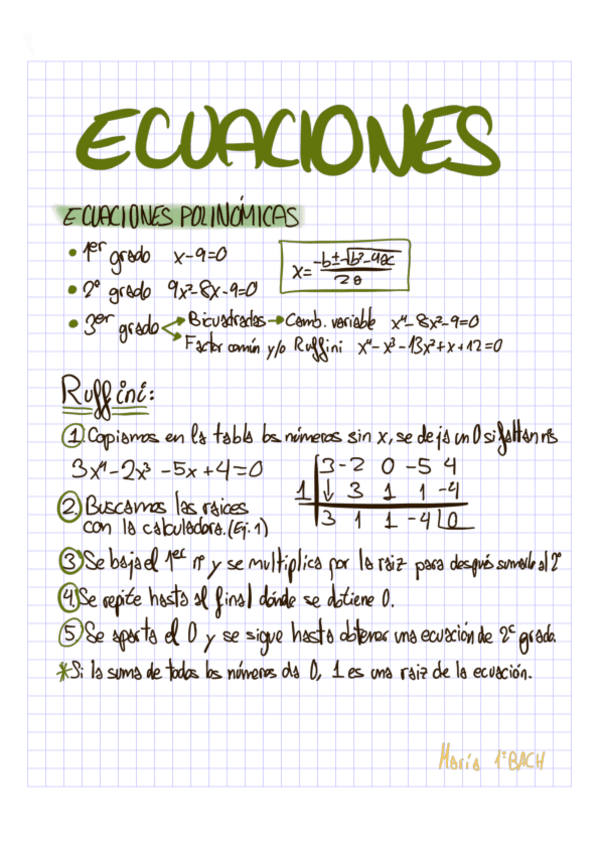 ECUACIONES
ECUACIONES POLINÓMICAS
• 1er grado x-9=0
x= -b±√b²-4ac / 2a
• 2º grado 9x²-8x-9=0
• 3er grado
Bicuadradas → Camb. variable x⁴-8x²-9=0
Factor común y/o Ruffini x⁴-x³-13x²+x+12=0
Ruffini:
1. Copiamos en la tabla los números sin x, se deja un 0 si faltan nºs
3x⁴-2x³-5x+4=0
3 -2 0 -5 4
1 ↓ 3 1 1 -4
3 1 1 -4 0
2. Buscamos las raices
con la calculadora. (Ej. 1)
3. Se baja el 1er nº y se multiplica por la raiz para después sumarle al 2º
4. Se repite hasta al final dónde se obtiene 0.
5. Se aparta el 0 y se sigue hasta obtener una ecuación de 2º grado.
* Si la suma de todos los números da 0, 1 es una raiz de la ecuación.
María 1ºBACH